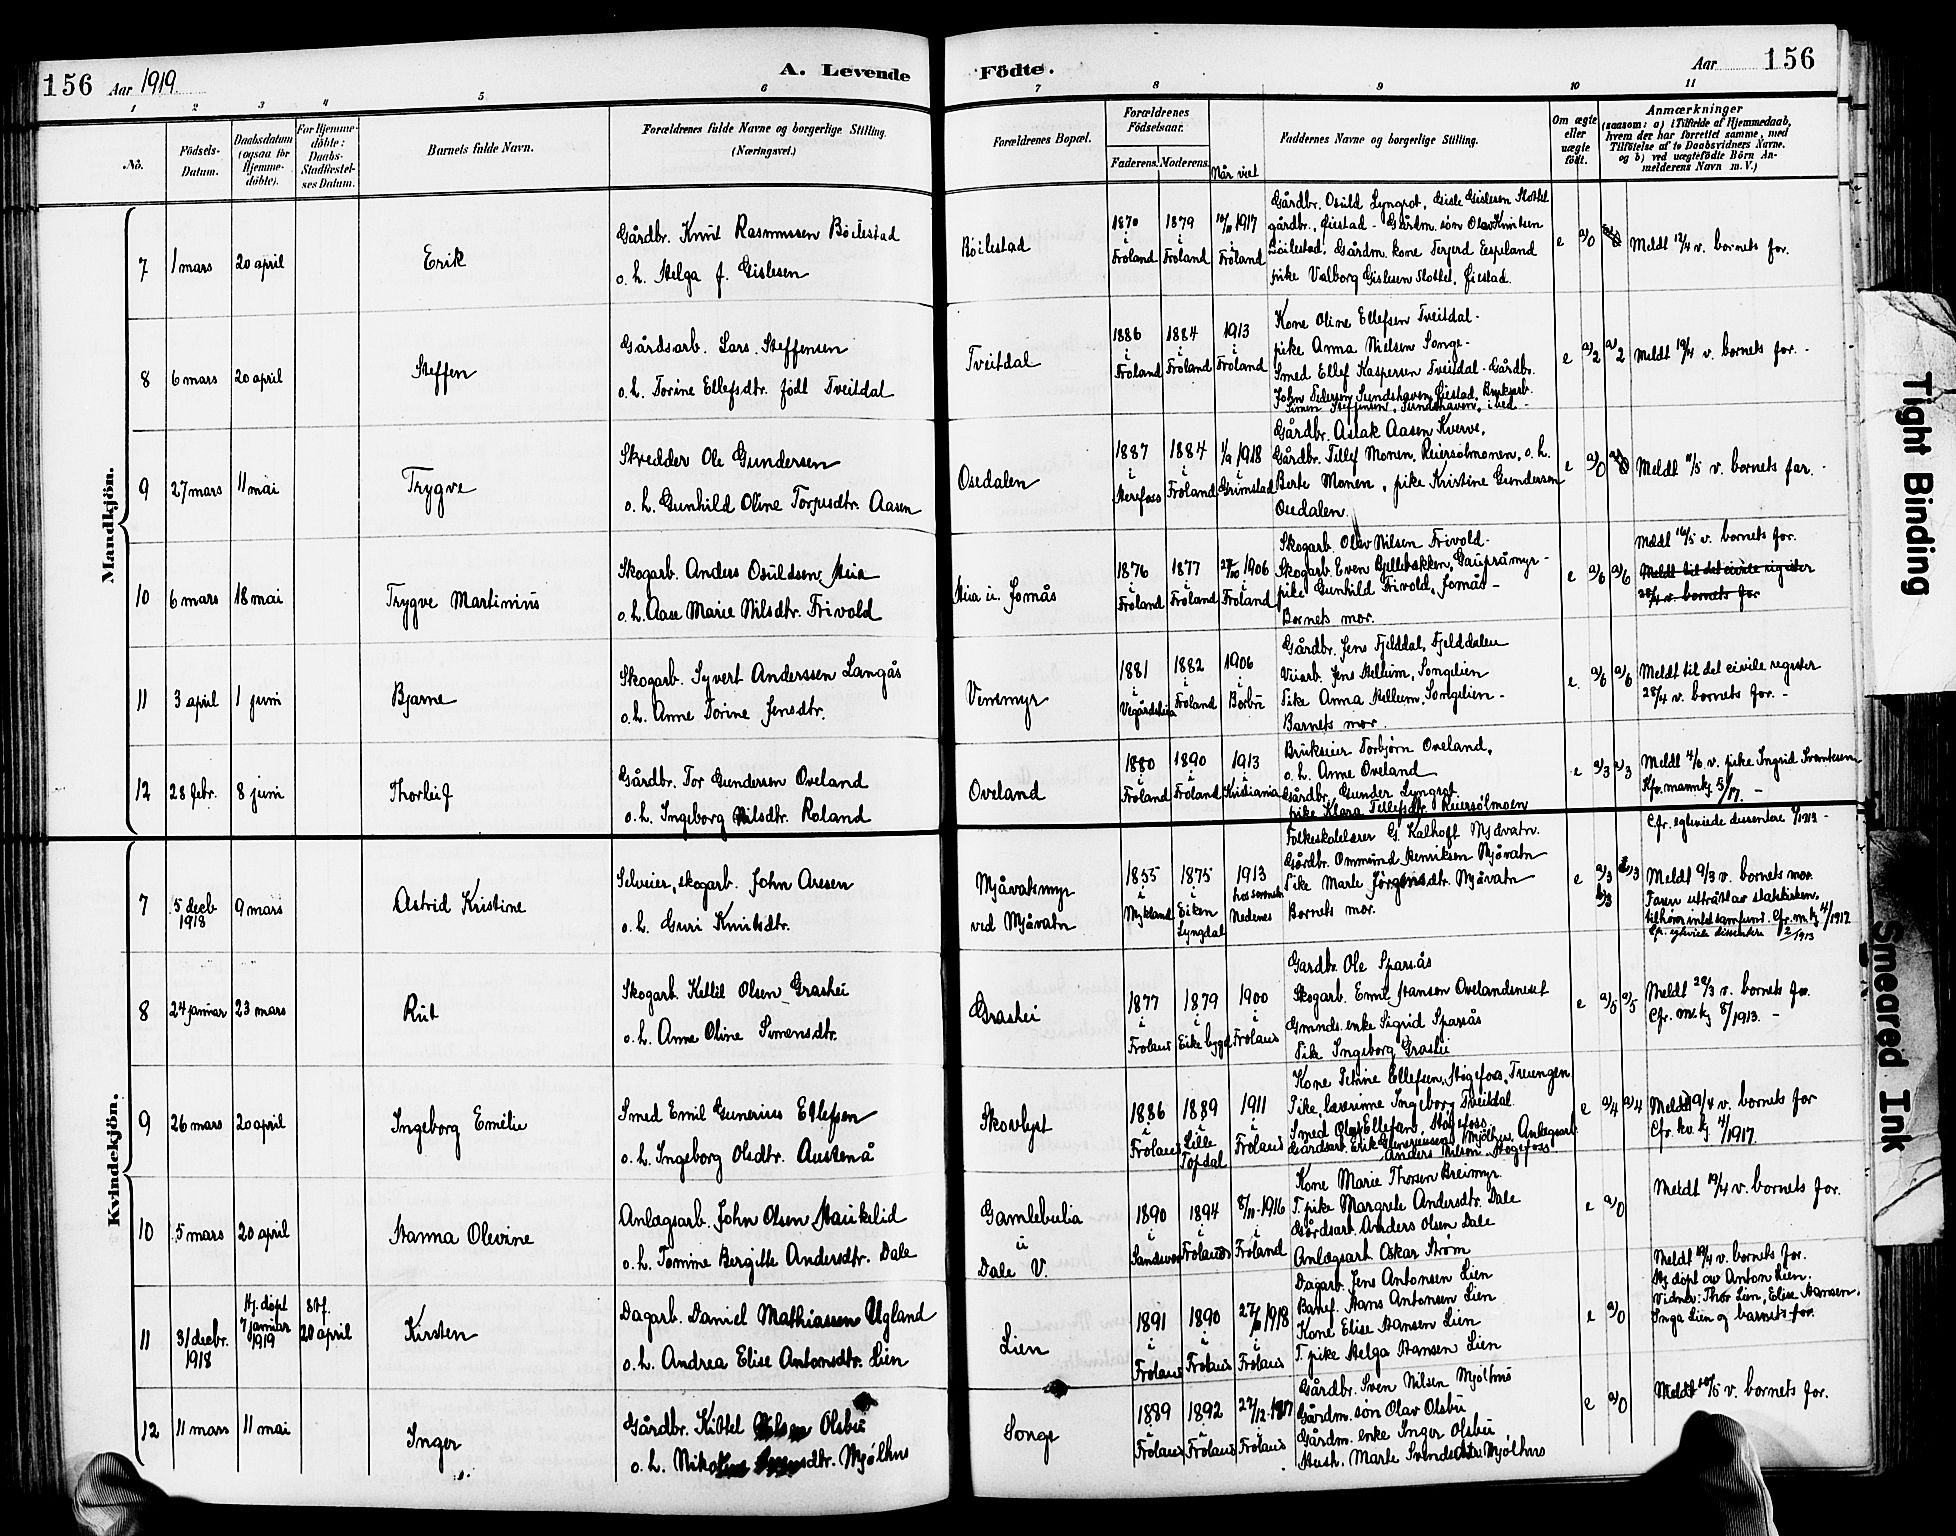 156 Aar 1919. A. Levende
Födte. Aar 156
1 2 3 4 5 6 7 8 9 10 11
No.
Födsels-Datum.
Daabsdatum (ogsaa for Hjemme-döbte).
For Hjemme-döbte: Daabs-Stadfæstel-ses Datum.
Barnets fulde Navn.
Forældrenes fulde Navne og borgerlige Stilling.
(Næringsvei.)
Forældrenes Bopæl.
Forældrenes Födselsaar.
Faderens. Moderens.
Når viet
Faddernes Navne og borgerlige Stilling.
Om ægte eller uægte födt.
Anmærkninger
(saasom: a) i Tilfælde af Hjemmedaab, hvem der har forrettet samme, med Tilföielse af to Daabsvidners Navne. og b) ved uægtefödte Börn An-melderens Navn m. V.)
Mandkjön.
7 1 mars 20 april Erik
Gårdbr. Knut Rasmussen Böilestad
o. h. Helga f. Gislesen
Böilestad
1870 i Froland 1879 i Froland 1917 i Froland
Gårdbr. Osuld Lyngrot, Gisle Gislesen Slottet
gårdbr., Gjestad - Gårdm. sön Olav Knutsen
Böilestad, Gårdm. kone Terjerd Espeland
pike Valborg Gislesen Slottet, Gjestad.
e a/0 Meldt 12/4 v. barnets far.
8 6 mars 20 april Steffen
Gårdsarb. Lars Steffensen
o. h. Torine Ellefsdtr. födt Tveitdal
Tveitdal
1886 i Froland 1884 i Froland 1913 i Froland
Kone Oline Ellefsen Tveitdal -
pike Anna Nielsen Songe -
Smed Ellef Kaspersen Tveitdal - Gårdbr.
John Pedersen Sundshaven, Gjestad, Bruksarb.
Simen Steffensen, Sundshaven, i bed -
e a/2 a/2 Meldt 19/4 v. barnets far. -
9 27 mars 11 mai Trygve
Skredder Ole Gundersen
o. h. Gunhild Oline Torjusdtr. Aasen
Osedalen
1887 i Herefoss 1884 i Froland 1/9 1918 i Grimstad
Gårdbr. Aslak Aasen Kverve,
Gårdbr. Tellef Monen, Reiersölmonen, o. h.
Berte Monen, pike Kristine Gundersen
Osedalen.
e a/0 Meldt 11/5 v. barnets far. -
10 6 mars 18 mai Trygve Martinius
Skogarb. Anders Osuldsen Heia
o. h. Aase Marie Nilsdtr. Frivold
Heia u. Jomås
1876 i Froland 1877 i Froland 27/10 1906 i Froland
Skogarb. Olav Nilsen Frivold -
Skogarb. Even Bellebakken, Gaupråmyr -
pike Gunhild Frivold, Jomås -
Barnets mor.
e a/6 a/6 Meldt 16/5 v. barnets far.
Meldt til det civile register
28/4 v. barnets far
11 3 april 1 juni Bjarne
Skogarb. Syvert Anderssen Langås
o. h. Anne Torine Jensdtr.
Vensmyr
1881 i Vegårdsheia 1882 i Froland 1906 i Barbu
Gårdbr. Jens Fjelddal, Fjelddalen
Veiarb. Jens Hellum, Songelien
Pike Anna Hellum, Songelien -
Barnets mor.
e. a/6 a/6 Meldt til det civile register
28/4 v. barnets far. -
12 28 febr. 8 juni Thorleif
Gårdbr. Tor Gundersen Oveland
o. h. Ingeborg Nilsdtr. Roland
Oveland
1880 i Froland 1890 i Froland 1913 i Kristiania
Brukseier Torbjörn Oveland,
o. h. Anne Oveland
Gårdbr. Gunder Lyngrot.
pike Klara Tellefsdtr. Reiersölmoen
e a/3 a/3 Meldt 4/6 v. pike Ingrid Svenksen
Kfr. mannkj. 5/17. -
Kvindekjön.
7 5 decb 1918 9 mars Astrid Kristine
Selveier, skogarb. John Aresen
o. h. Guri Knutsdtr.
Mjåvatsmyr ved Mjåvatn
1855 i Mykland 1875 i Eiken Lyngdal 1913 hos sorenskr. Nedenes
Folkeskolelærer G. Kalhoft Mjåvatn.
Gårdbr. Ommund Henriksen Mjåvatn
Pike Marte Jörgensdtr. Mjåvatn
Barnets mor.
e a/3 b/3 a/3
Cfr. egteviede dissentere 2/1913 -
Meldt 9/3 v. barnets mor.
Faren utträtt av statskirken,
tilhörer intet samfund. Cfr. m. kj 4/1917
Cfr. egteviede dissentere 2/1913
8 24 januar 23 mars Rut
Skogarb. Kettil Olsen Grashei
o. h. Anne Oline Simensdtr.
Grashei
1877 i Froland 1879 i Eikebygd 1900 i Froland
Gardbr. Ole Sparsås
Skogarb. Emil Hansen Ovelandsneset
Grunds. enke Sigrid Sparsås
Pike Ingeborg Grashei
e a/5 a/5 Meldt 20/3 v. barnets far.
Cfr. m. kj 8/1913. -
9 26 mars 20 april Ingeborg Emilie
Smed Emil Gunerius Ellefsen
o. h. Ingeborg Olsdtr. Austenå
Skovlyst
1886 i Froland 1889 i Lille Topdal 1911 i Froland
Kone Petrine Ellefsen, Högefoss, Treungen
Pike lærerinne Ingeborg Tveitdal
Smed Olaf Ellefsen, Högefoss
Gårdsarb. Erik Mjölhus, Anlægsarb.
Anders Nilsen Högefoss.
e a/4 a/4 Meldt 19/4 v. barnets far
Cfr. kv. kj 4/1917.
10 5 mars 20 april Hanna Olevine
Anlægsarb. John Olsen Haukelid
o. h. Tomine Bergitte Andersdtr. Dale
Gamlebulia u Dale V.
1890 i Sandsver 1894 i Froland 8/11 - 1916 i Froland
Kone Marie Thorsen Breimyr.
T. pike Margrete Andersdtr. Dale
Gårdsarb. Anders Olsen Dale
Anlægsarb Oskar Ström
e a/0 Meldt 19/4 v. barnets far.
11 31 decbr. 1918 Hj. döpt 7 januar 1919 Stf. 20 april Kirsten
Dagarb. Daniel Mathiassen Ugland
o. h. Andrea Elise Antonsdtr. Lien
Lien
1891 i Froland 1890 i Froland 27/10 1918 i Froland
Dagarb. Jens Antonsen Lien
Banef. Hans Antonsen Lien
Kone Elise Hansen Lien
T. pike Helga Hansen Lien
e a/0 Meldt 19/4 v. barnets far.
Hj. döpt av Anton Lien.
Vidner: Thor Lien, Elise Hansen,
Inga Lien og barnets far.
12 11 mars 11 mai Inger
Gårdbr. Kittel Olsbu
o. h. Nikoline Mjölhus
Songe
1889 i Froland 1892 i Froland 27/12 - 1917 i Froland
Gårdbr. Sven Nilsen Mjölhus
Gårdm. sön Olav Olsbu
Gårdm. enke Inger Olsbu
Hush. Marte Svendsdtr. Mjölhus
e a/0 Meldt 10/5 v. barnets far.
Tight Binding
Smeared Ink